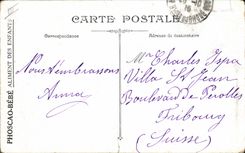 CARTE POSTALE
Correspondance
Adresse du destinataire
PHOSCAO-BÉBÉ ALIMENT DES ENFANTS
Nous t'embrassons
Anna
Mme Charles Ispa
Villa St Jean
Boulevard de Perolles
Fribourg
(Suisse)